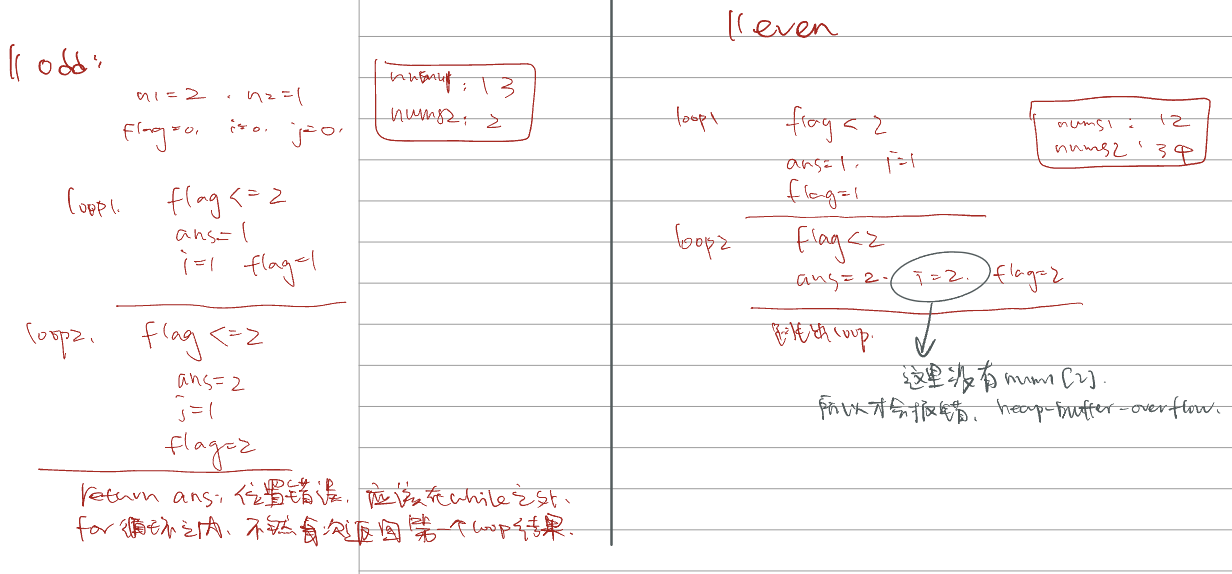 // odd:
n1=2 . n2=1
flag=0. i=0. j=0.
: 1 3
nums2: 2
loop1. flag <= 2
ans=1
i=1 flag=1
loop2. flag <=2
ans=2
j=1
flag=2
return ans; 位置错误. 应该在while之外.
for循环之内. 不然每次返回第一个loop结果.
// even
nums1 : 12
nums2 : 34
loop1 flag < 2
ans=1. i=1
flag=1
loop2 flag<2
ans=2. i=2. flag=2
跳出loop.
这里没有 [2].
所以才会报错. heap-buffer-overflow.